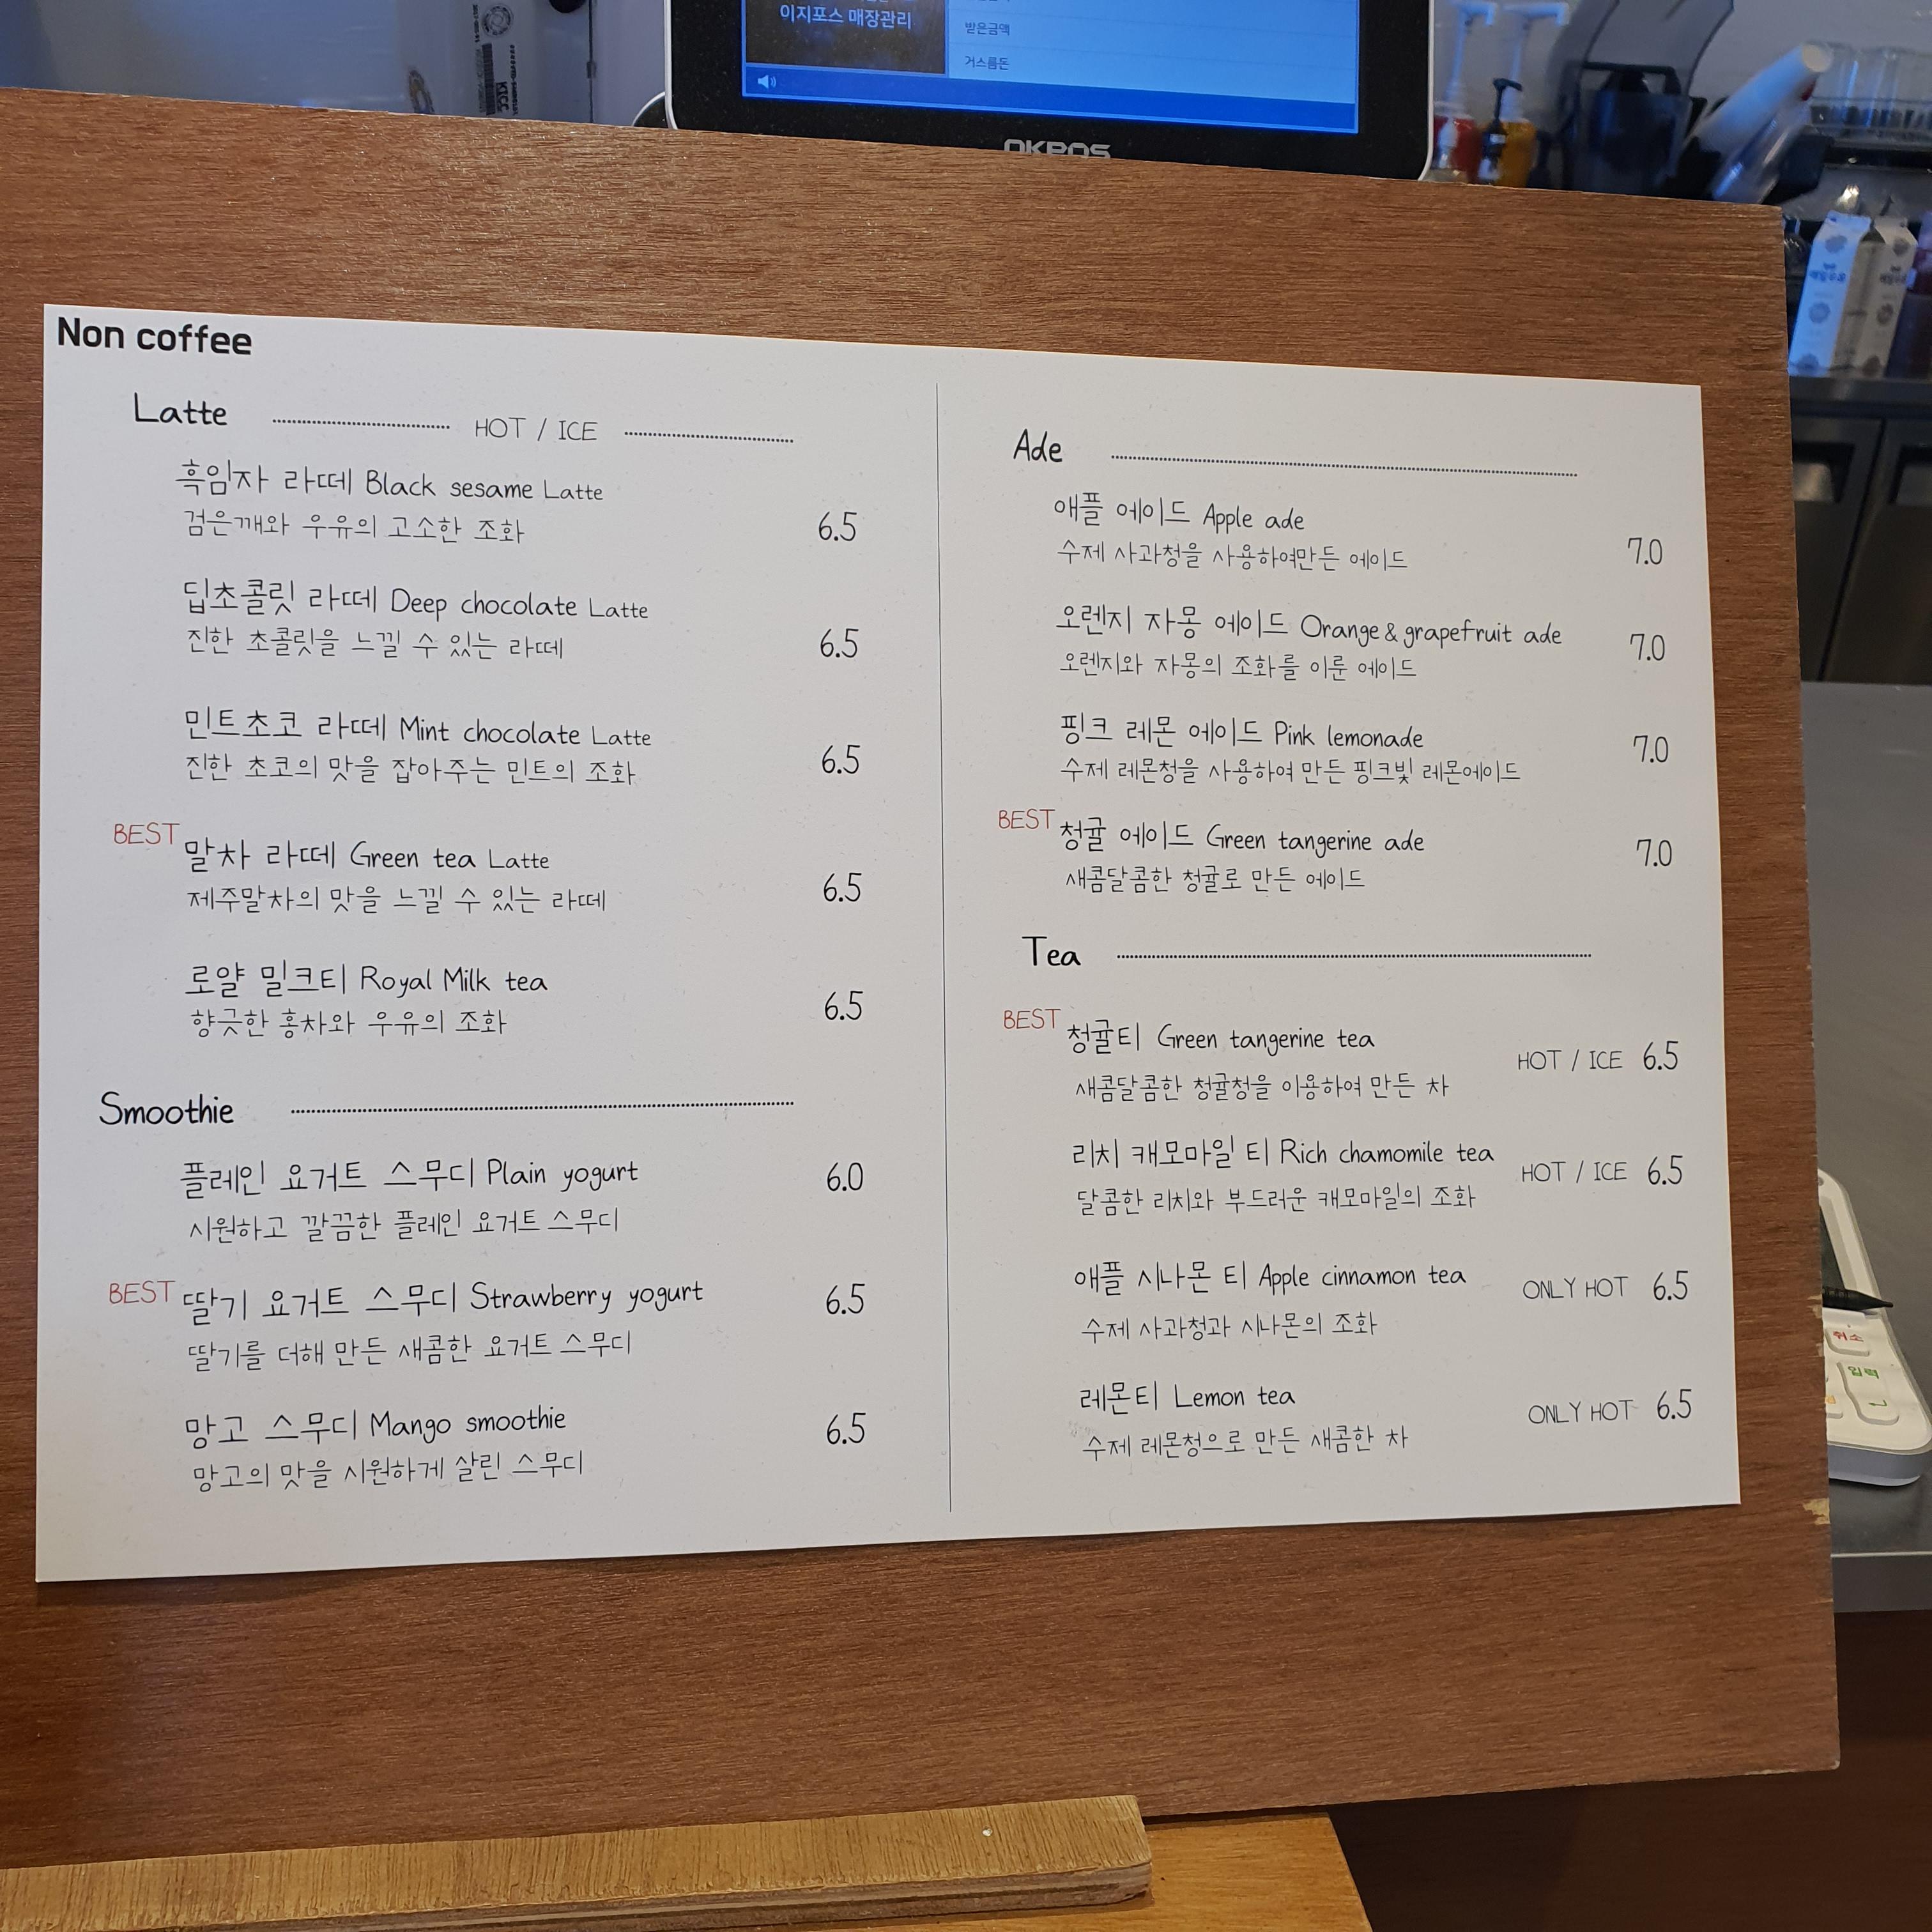 이지포스 매장관리
받은금액
거스름돈
OKPOS
KICC
Non coffee
Latte HOT / ICE
흑임자 라떼 Black sesame Latte
검은깨와 우유의 고소한 조화 6.5
딥초콜릿 라떼 Deep chocolate Latte
진한 초콜릿을 느낄 수 있는 라떼 6.5
민트초코 라떼 Mint chocolate Latte
진한 초코의 맛을 잡아주는 민트의 조화 6.5
BEST 말차 라떼 Green tea Latte
제주말차의 맛을 느낄 수 있는 라떼 6.5
로얄 밀크티 Royal Milk tea
향긋한 홍차와 우유의 조화 6.5
Smoothie
플레인 요거트 스무디 Plain yogurt 6.0
시원하고 깔끔한 플레인 요거트 스무디
BEST 딸기 요거트 스무디 Strawberry yogurt 6.5
딸기를 더해 만든 새콤한 요거트 스무디
망고 스무디 Mango smoothie 6.5
망고의 맛을 시원하게 살린 스무디
Ade
애플 에이드 Apple ade
수제 사과청을 사용하여만든 에이드 7.0
오렌지 자몽 에이드 Orange & grapefruit ade 7.0
오렌지와 자몽의 조화를 이룬 에이드
핑크 레몬 에이드 Pink lemonade 7.0
수제 레몬청을 사용하여 만든 핑크빛 레몬에이드
BEST 청귤 에이드 Green tangerine ade 7.0
새콤달콤한 청귤로 만든 에이드
Tea
BEST 청귤티 Green tangerine tea HOT / ICE 6.5
새콤달콤한 청귤청을 이용하여 만든 차
리치 캐모마일 티 Rich chamomile tea HOT / ICE 6.5
달콤한 리치와 부드러운 캐모마일의 조화
애플 시나몬 티 Apple cinnamon tea ONLY HOT 6.5
수제 사과청과 시나몬의 조화
레몬티 Lemon tea ONLY HOT 6.5
수제 레몬청으로 만든 새콤한 차
취소
입력